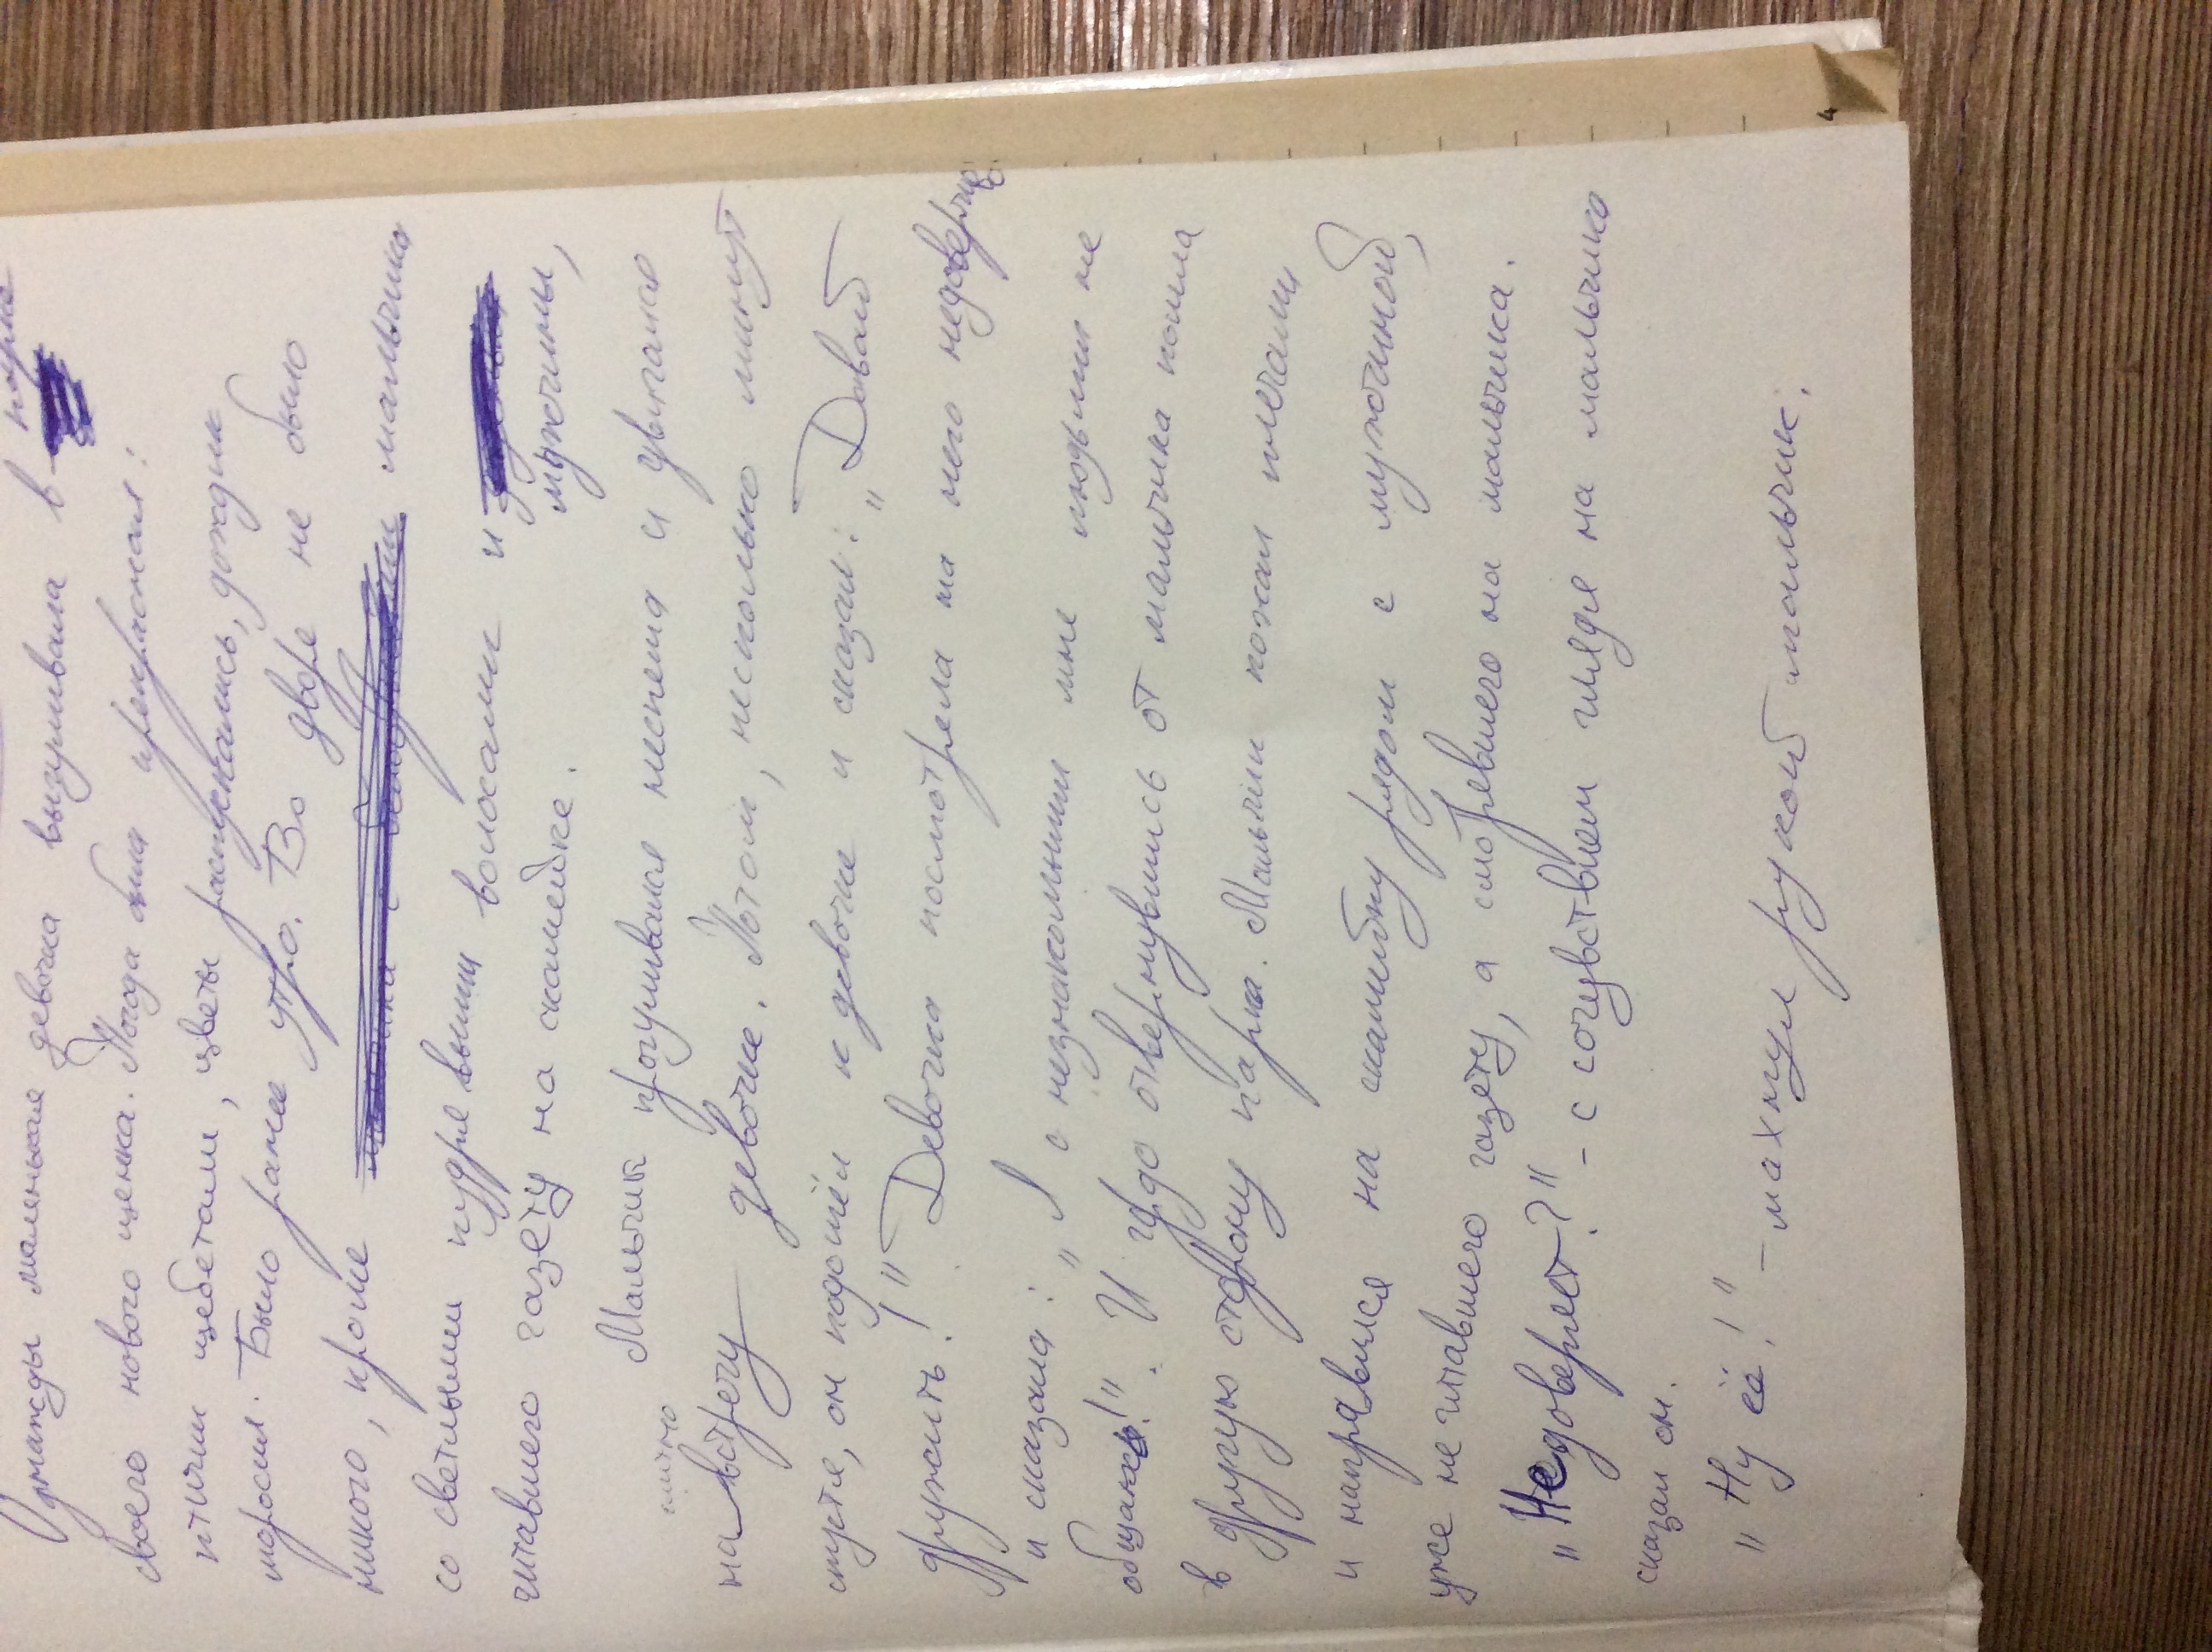 Однажды маленькая девочка выгуливала в парке
своего нового щенка. Погода была прекрасная:
птички щебетали, цветы распускались, дождик
моросил. Было ранее утро. Во дворе не было
никого, кроме мальчика
со светлыми кудрявыми волосами и
мужчины,
читавшего газету на скамейке.
Мальчик прогуливался неспеша и двигался
на встречу девочке. Потом, несколько минут
спустя, он подошёл к девочке и сказал: "Давай
дружить!" Девочка посмотрела на него недоверчиво
и сказала: "Я с незнакомыми мне людьми не
общаюсь!". И гордо отвернувшись от мальчика пошла
в другую сторону парка. Мальчик пожал плечами
и направился на скамейку рядом с мужчиной,
уже не читавшего газету, а смотревшего на мальчика.
"Недоверяет?" - с сочувствием глядя на мальчика
сказал он.
"Ну её!" - махнул рукой мальчик.
4